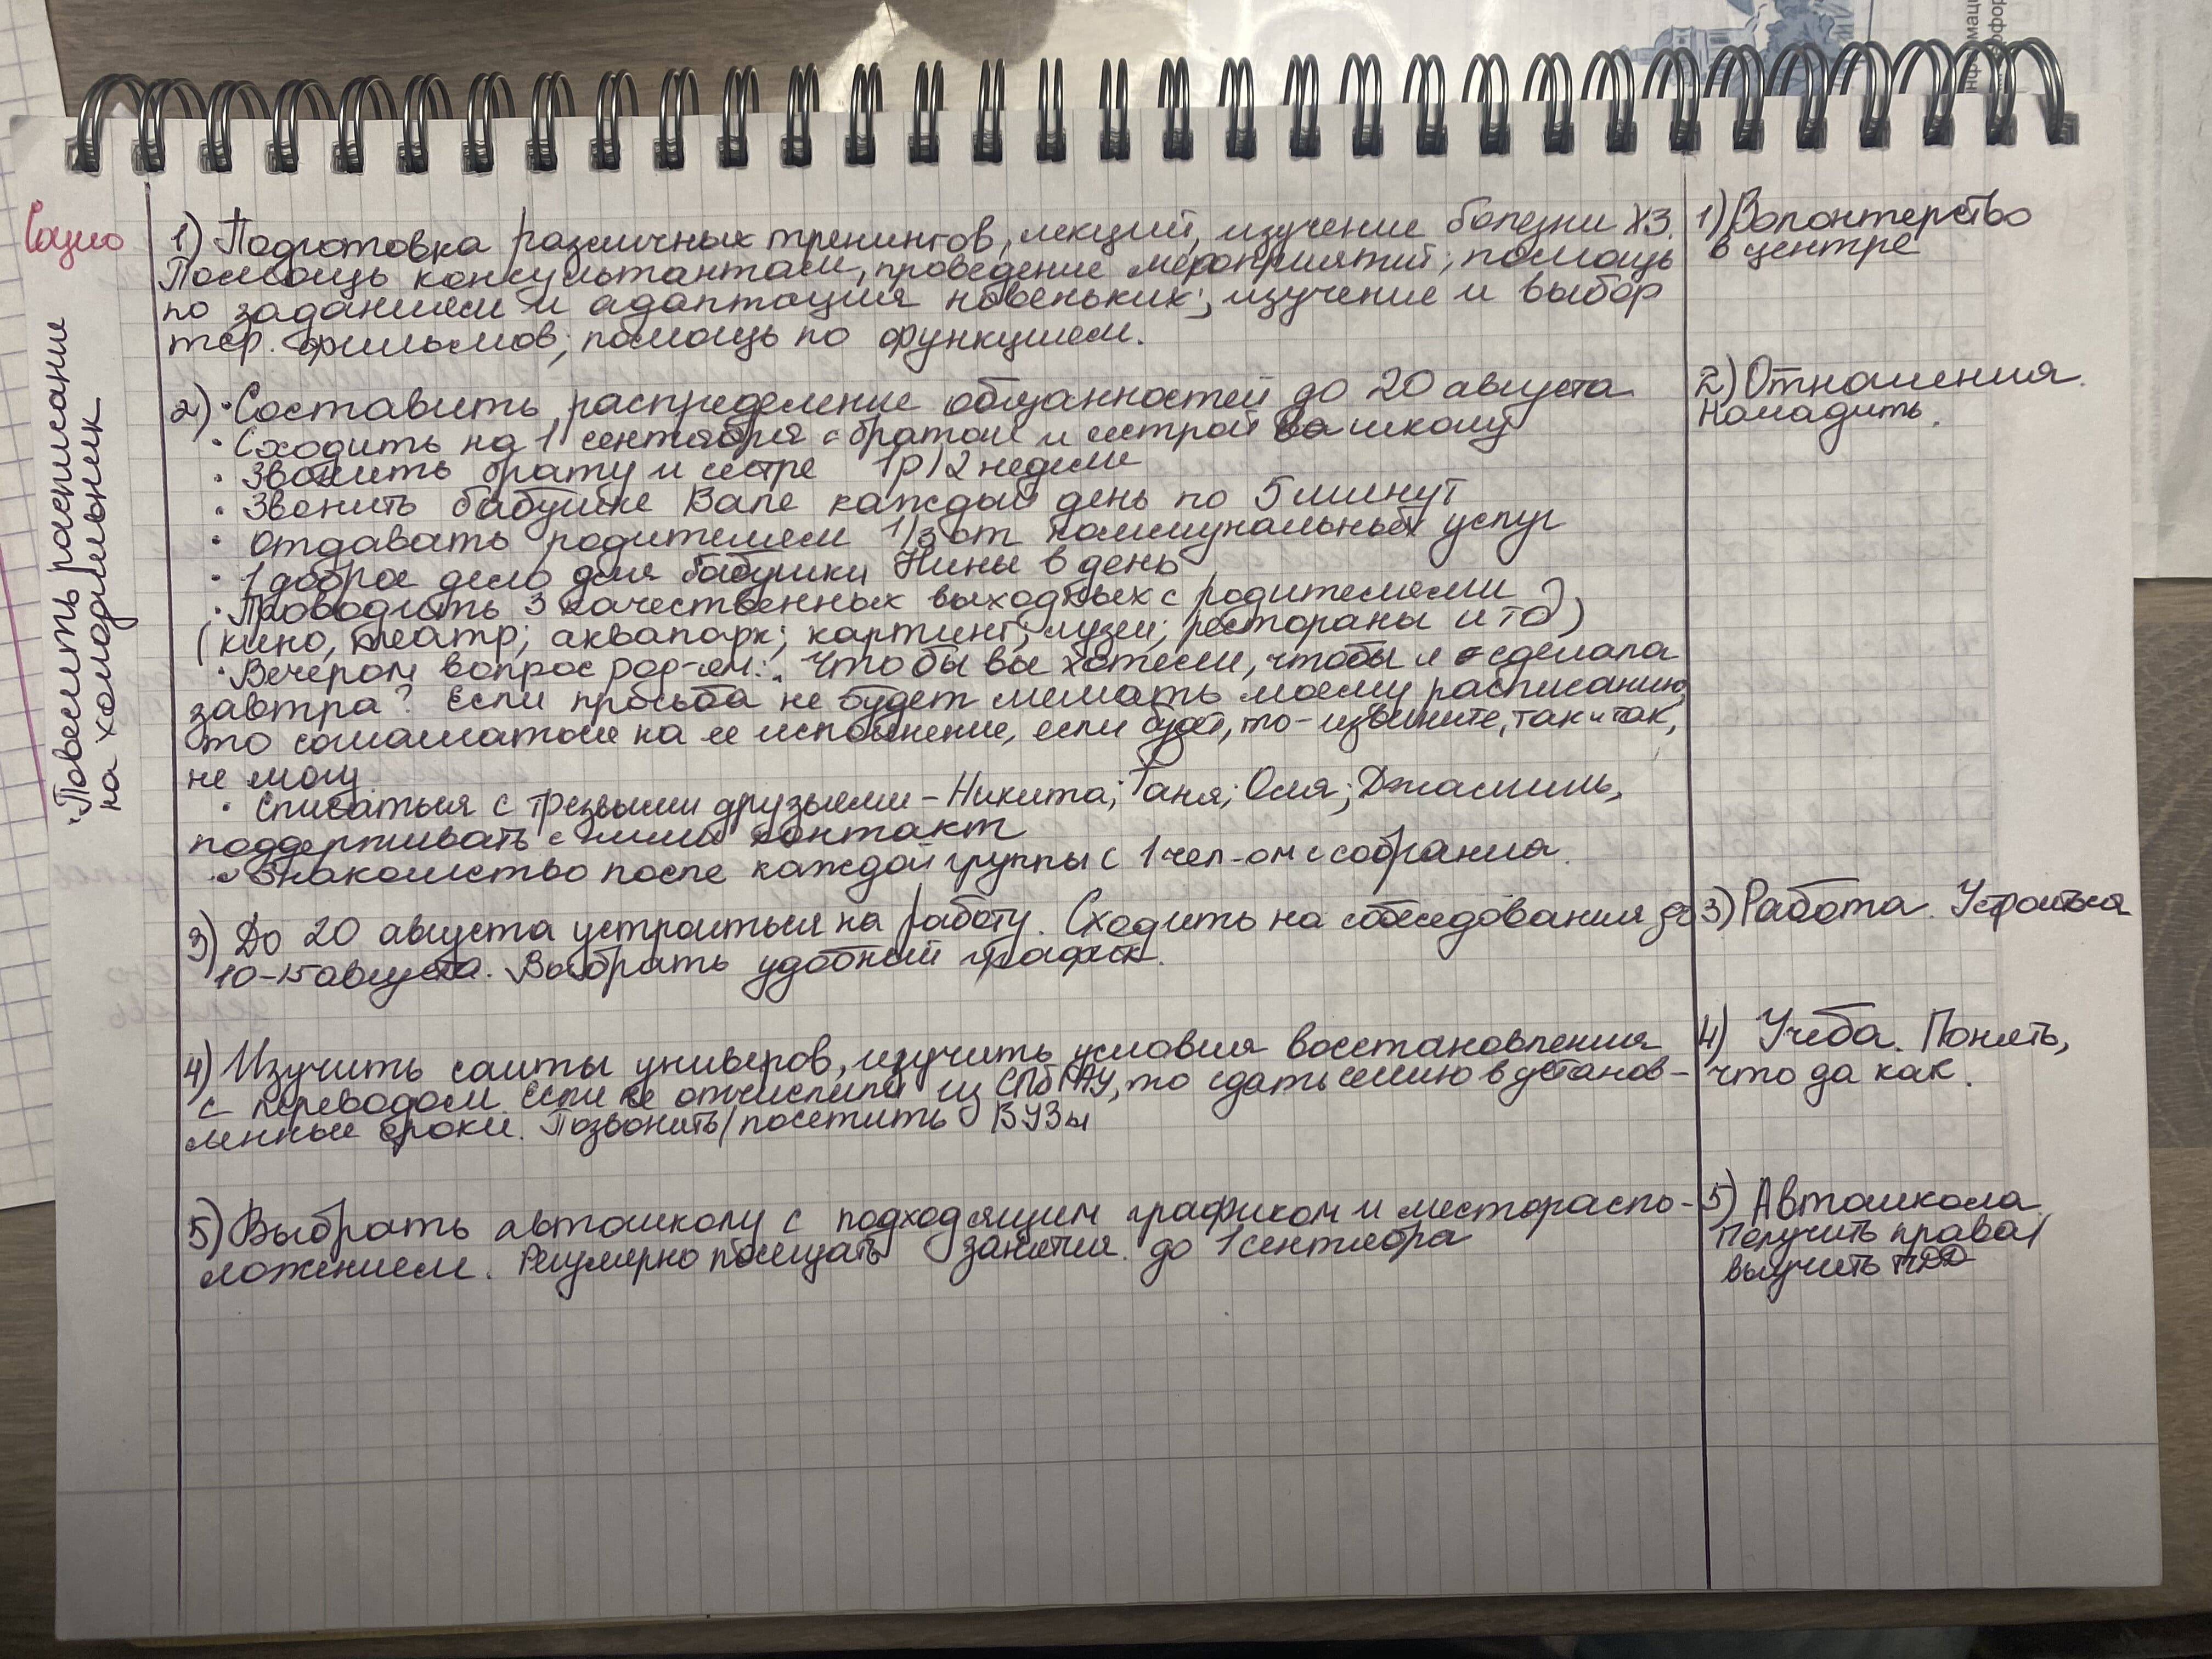 Социо
· Повесить расписание
на холодильник
1) Подготовка различных тренингов, лекций, изучение болезни ХЗ.
Помощь консультантам, проведение мероприятий; помощь
по заданием и адаптация новеньких; изучение и выбор
тер. фильмов; помощь по функцием.
2) · Составить распределение обязанностей до 20 августа
· Сходить на 1 сентября с братом и сестрой в школу
· Звонить брату и сестре 1р/2 недели
· Звонить бабушке Вале каждый день по 5 минут
· Отдавать родителем 1/3 от коммунальных услуг
· 1 доброе дело для бабушки Нины в день
· Проводить 3 качественных выходных с родителями
(кино, театр; аквапарк; картинг; музеи; рестораны и тд)
· Вечером вопрос род-ем: что бы вы хотели, чтобы я сделала
завтра? Если просьба не будет мешать моему расписанию,
то соглашаться на ее исполнение, если будет, то - извините, так и так,
не могу
· Списаться с трезвыми друзьями - Никита; Таня; Оля; Джамиль,
поддерживать с ними контакт
· Знакомство после каждой группы с 1 чел-ом с собрания.
3) До 20 августа устроиться на работу. Сходить на собеседования до
10-15 августа. Выбрать удобный график.
4) Изучить сайты универов, изучить условия восстановления
с переводом. Если не отчислили из СПбГАУ, то сдать сессию в установ-
ленные сроки. Позвонить/посетить ВУЗы
5) Выбрать автошколу с подходящим графиком и местораспо-
ложением. Регулярно посещать занятия. до 1 сентября
1) Волонтерство
в центре
2) Отношения.
Наладить.
3) Работа. Устроиться
4) Учеба. Понять,
что да как.
5) Автошкола
Получить права/
выучить ПДД